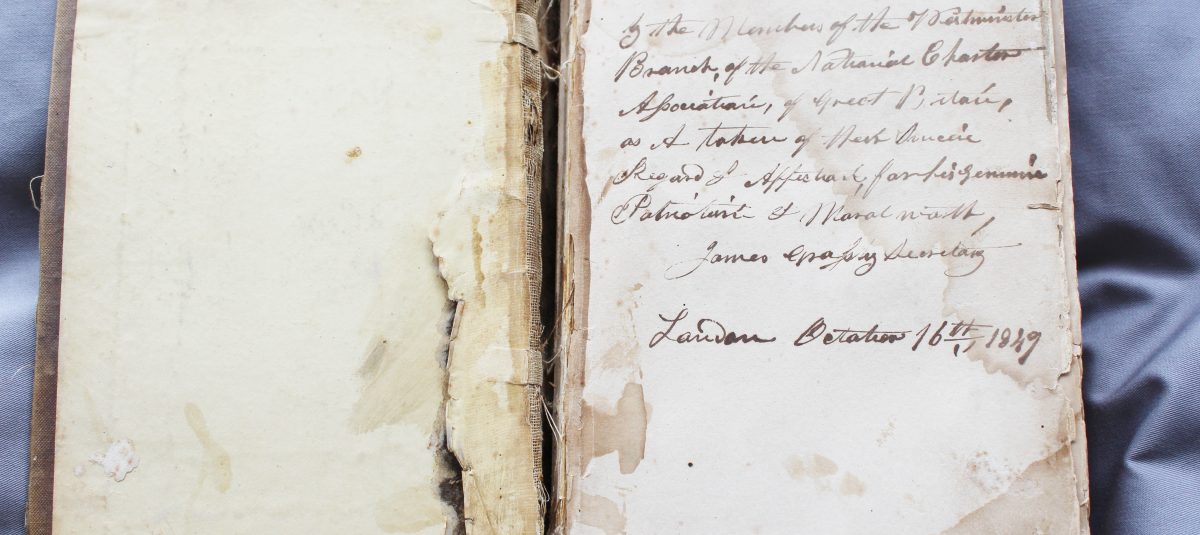 by the Members of the Westminster
Branch, of the National Charter
Association, of Great Britain,
as A token of their Sincere
Regard & Affection, for his genuine
Patriotism & Moral worth,
James Grassby Secretary
London October 16th, 1849